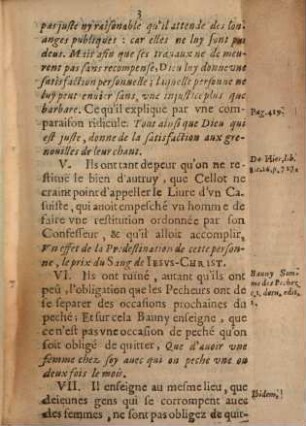 3
par juste ny raisonable qu'il attende des lou-
anges publiques : car elles ne luy sont pas
deus. Mais afin que ses trauaux ne demeu-
rent pas sans recompense, Dieu luy donne vne
satisfaction personnelle ; laquelle personne ne
luy peut enuier sans, vne injustice plus que
barbare. Ce qu'il explique par vne com-
paraison ridicule. Tout ainsi que Dieu qui
est juste, donne de la satisfaction aux gre-
noüilles de leur chant.
Pag. 419.
V. Ils ont tant de peur qu'on ne re-
stituë le bien d'autruy, que Cellot ne
craint point d'appeller le Liure d'vn Ca-
suiste, qui auoit empesché vn homme de
faire vne restitution ordonnée par son
Confesseur, & qu'il alloit accomplir,
Vn effet de la Predestination de cette person-
ne, le prix du Sang de IESVS-CHRIST.
De Hier. l.
VI. Ils ont ruiné, autant qu'ils ont
peû, l'obligation que les Pecheurs ont de
se separer des occasions prochaines du
peché ; Et sur cela Bauny enseigne, que
que ce n'est pas vne occasion de peché qu'on
soit obligé de quitter, Que d'auoir vne
femme chez soy auec qui on peche vne ou
deux fois le mois.
Bauny Som-
me des Pechez
VII. Il enseigne au mesme lieu, que
de ieunes gens qui se corrompent auec
des femmes, ne sont pas obligez de quit-
Ibidem.